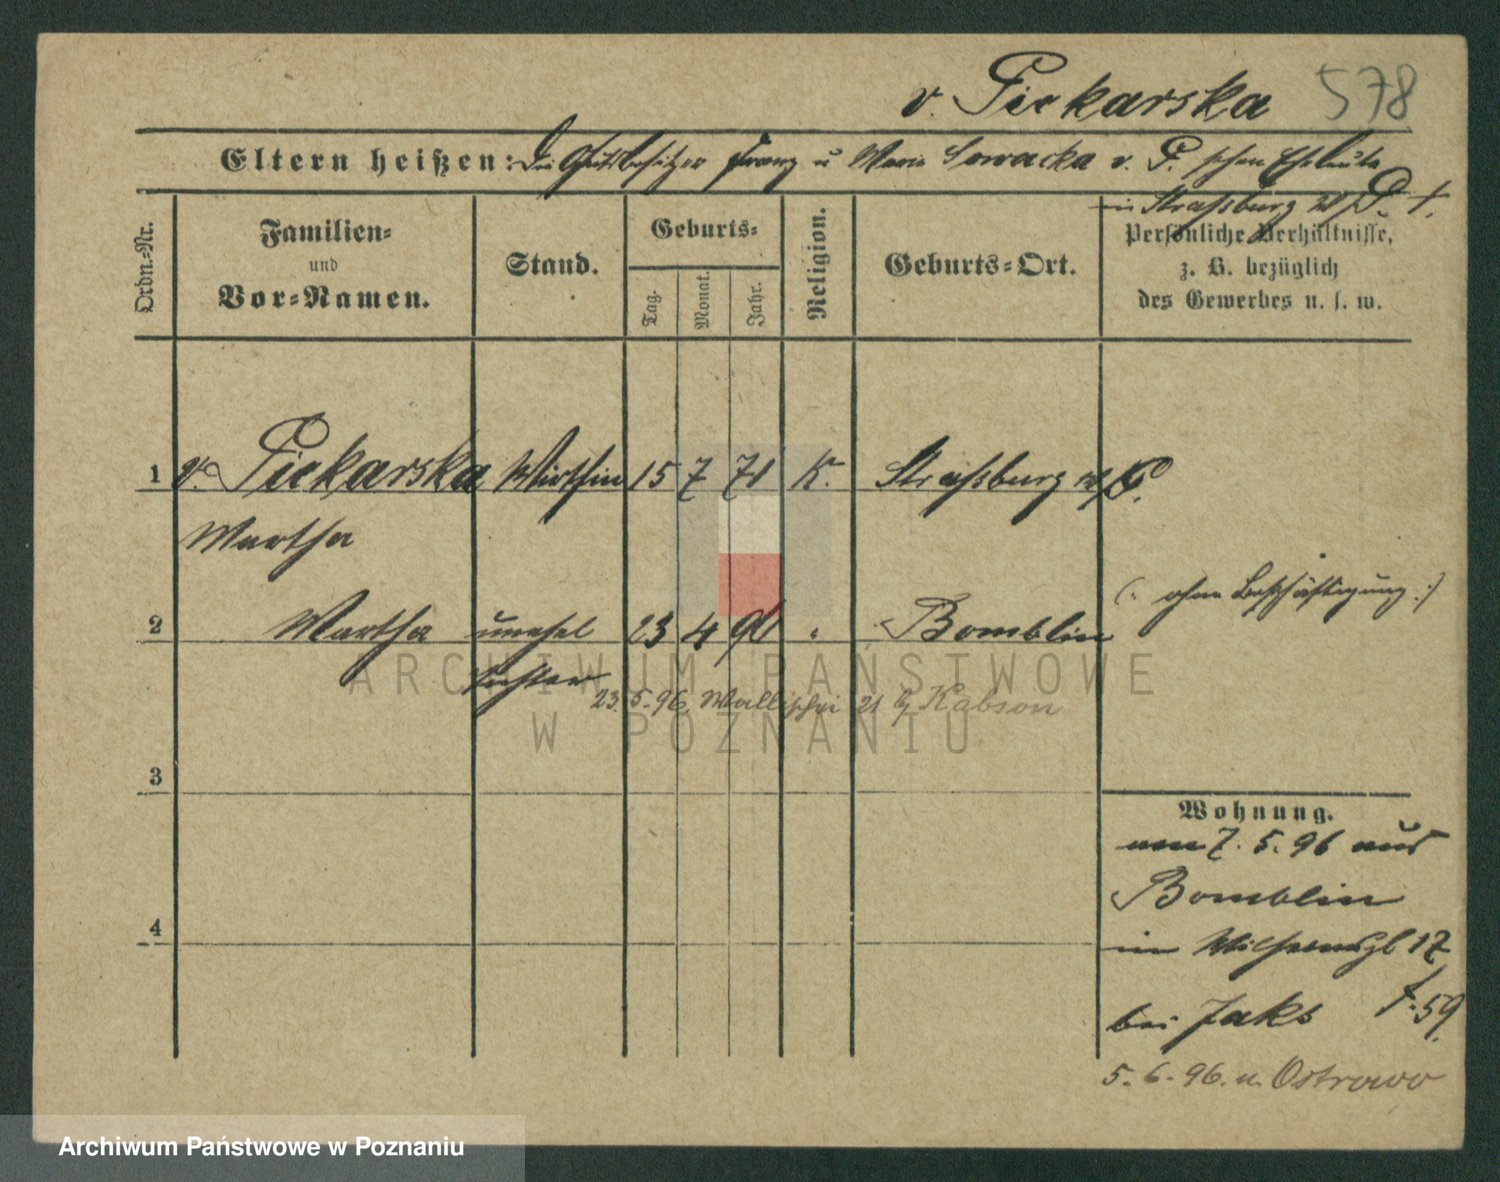 v. Piekarska 578
Eltern heißen: Die Gutsbesitzer Franz u Marie Sowacka v. P. schen Eheleute
in Straßburg W/P †.
Ordn.-Nr.
Familien-
und
Vor-Namen.
Stand.
Geburts-
Tag.
Monat.
Jahr.
Religion.
Geburts-Ort.
Persönliche Verhältnisse,
z. B. bezüglich
des Gewerbes u. s. w.
1 v. Piekarska Wirthin 15 7 71 K. Straßburg W/P.
Martha
(: ohne Beschäftigung :)
2 Martha unehel 23 4 96 " Bomblin
Tochter
23. 5. 96. Wallischei 21 b/ Kabson
3
Wohnung.
am 7. 5. 96 aus
Bomblin
4
in Wilhelmspl 17
bei Jaks 59.
5. 6. 96. n. Ostrowo
ARCHIWUM PAŃSTWOWE
W POZNANIU
Archiwum Państwowe w Poznaniu